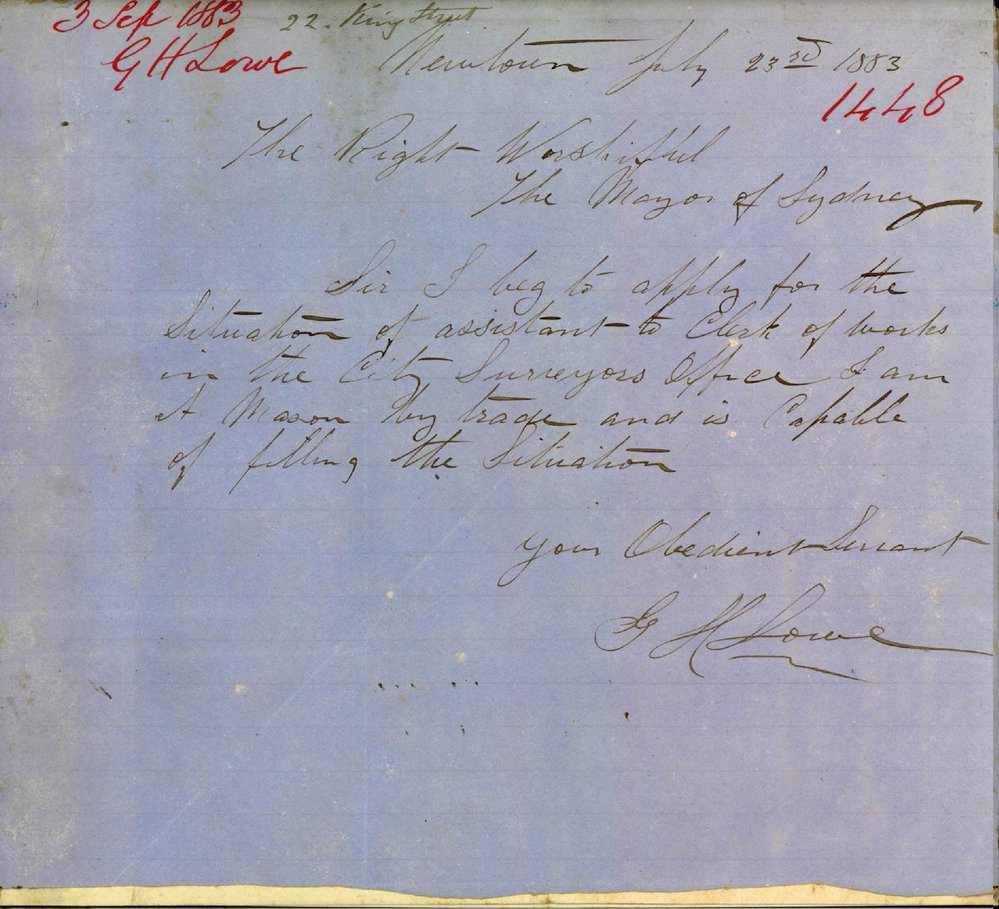 3 Sep 1883
G H Lowe
22. King Street
Newtown July 23rd 1883
1448
The Right Worshipful
The Mayor of Sydney
Sir I beg to apply for the
Situation of assistant to Clerk of works
in the City Surveyors Office I am
A Mason by trade and is Capable
of filling the Situation
your Obedient Servant
G H Lowe